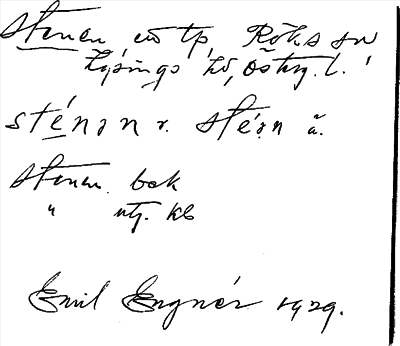 Stenen
Röks sn
Lysings hd, Östrg. l.
sténən r. stéən ä.
Stenen. bok
" utj. kb
Emil Engnér 1929.